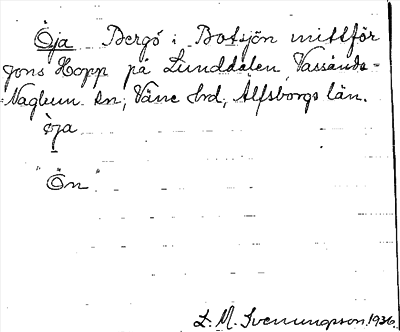 Öja Bergö i Botsjön mittför
Jons Hopp på Lunddalen, Vassända-
Naglum sn, Väne hrd, Älfsborgs län.
öja
"Ön"
L. M. Svenungsson 1936.